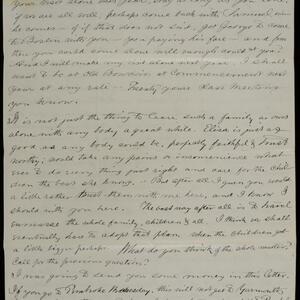 your
if we are all will perhaps come back with Carmel when
he comes — if that does not suit get George to come
to Boston with you — you paying his fare — and from
then you could come alone well enough could n't you?
And I will make my visit alone next year. I shall
want to be at Old Bowdoin at Commencement next
year at any rate — Twenty years Class Meeting
you know.
It is not just the thing to leave such a family as ours
alone with any body a great while. Eliza is just as
good as any body could be, perfectly faithful & trust
worthy, would take any pains or inconvenience what
ever to do every thing just right and care for the chil
dren the best she knows. But after all I guess you would
a little rather trust them with me here, and I know I
should with you here. The east may after all is to have
the whole family, children & all. I think we shall
eventually have to adopt that plan when the children get
a little bigger perhaps. What do you think of the whole matter?
Call for the previous question?
I was going to send you some money in this letter.
If you go to Pembroke Wednesday, this will not get to